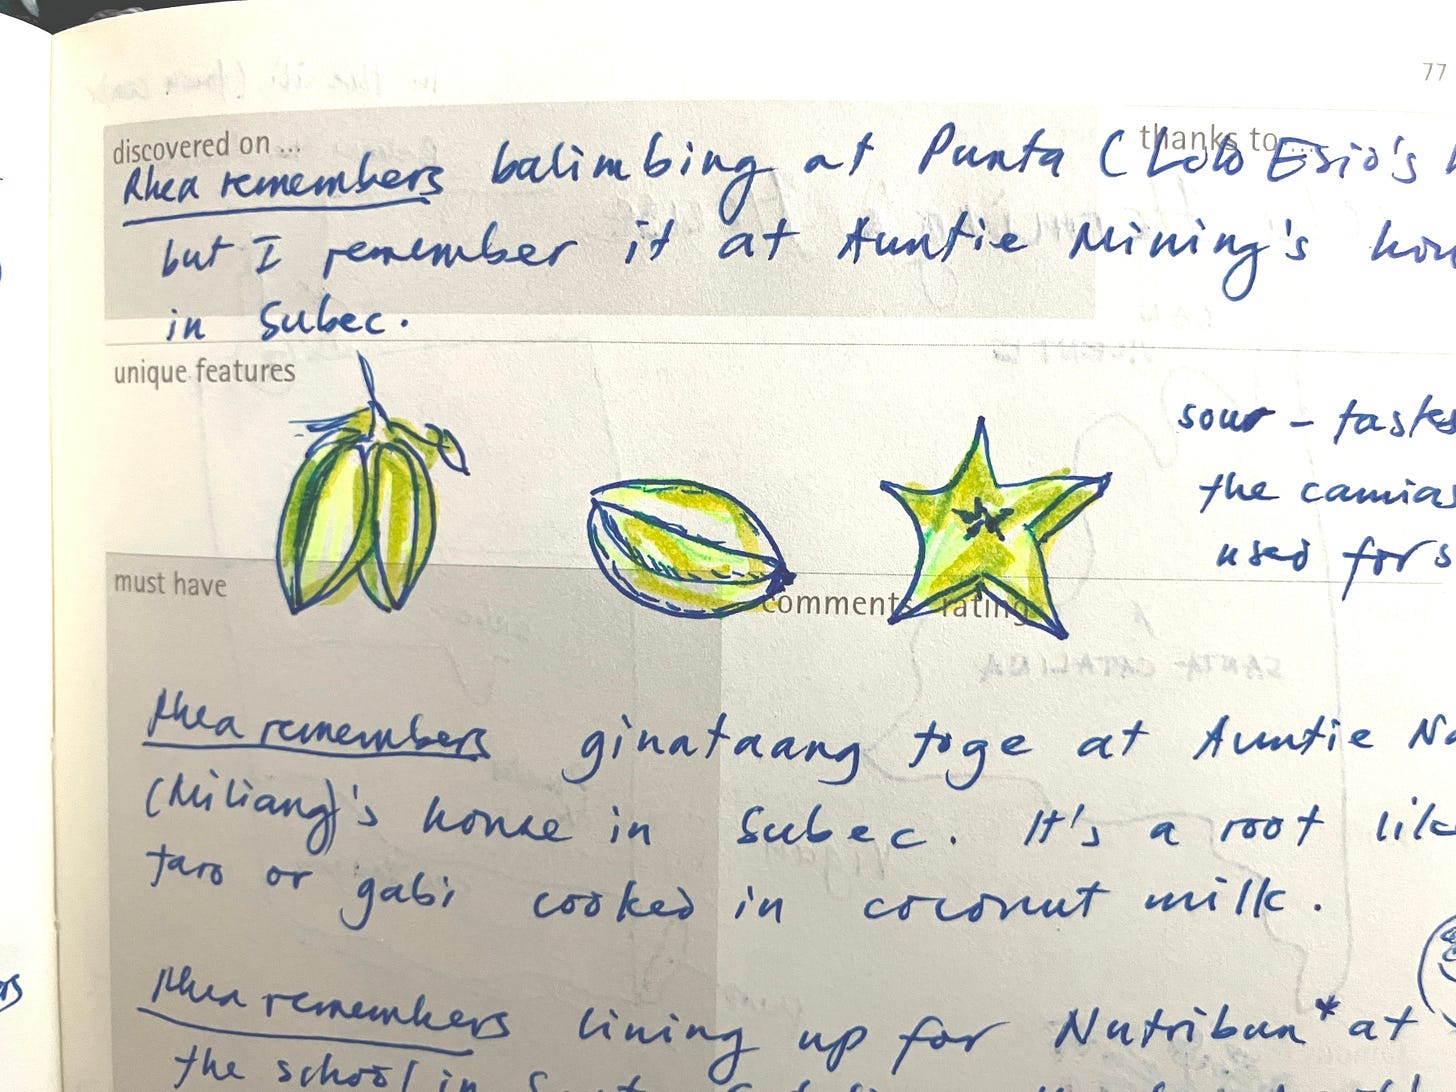 77
discovered on ...
thanks to ...
Rhea remembers balimbing at Punta (Lolo Esio's
but I remember it at Auntie Mining's
in Subec.
unique features
sour - tastes
the camias
used for
must have
comments rating
Rhea remembers ginataang toge at Auntie
(Miliang)'s house in Subec. It's a root
taro or gabi cooked in coconut milk.
Rhea remembers lining up for Nutribun* at
the school in
SANTA CATALINA